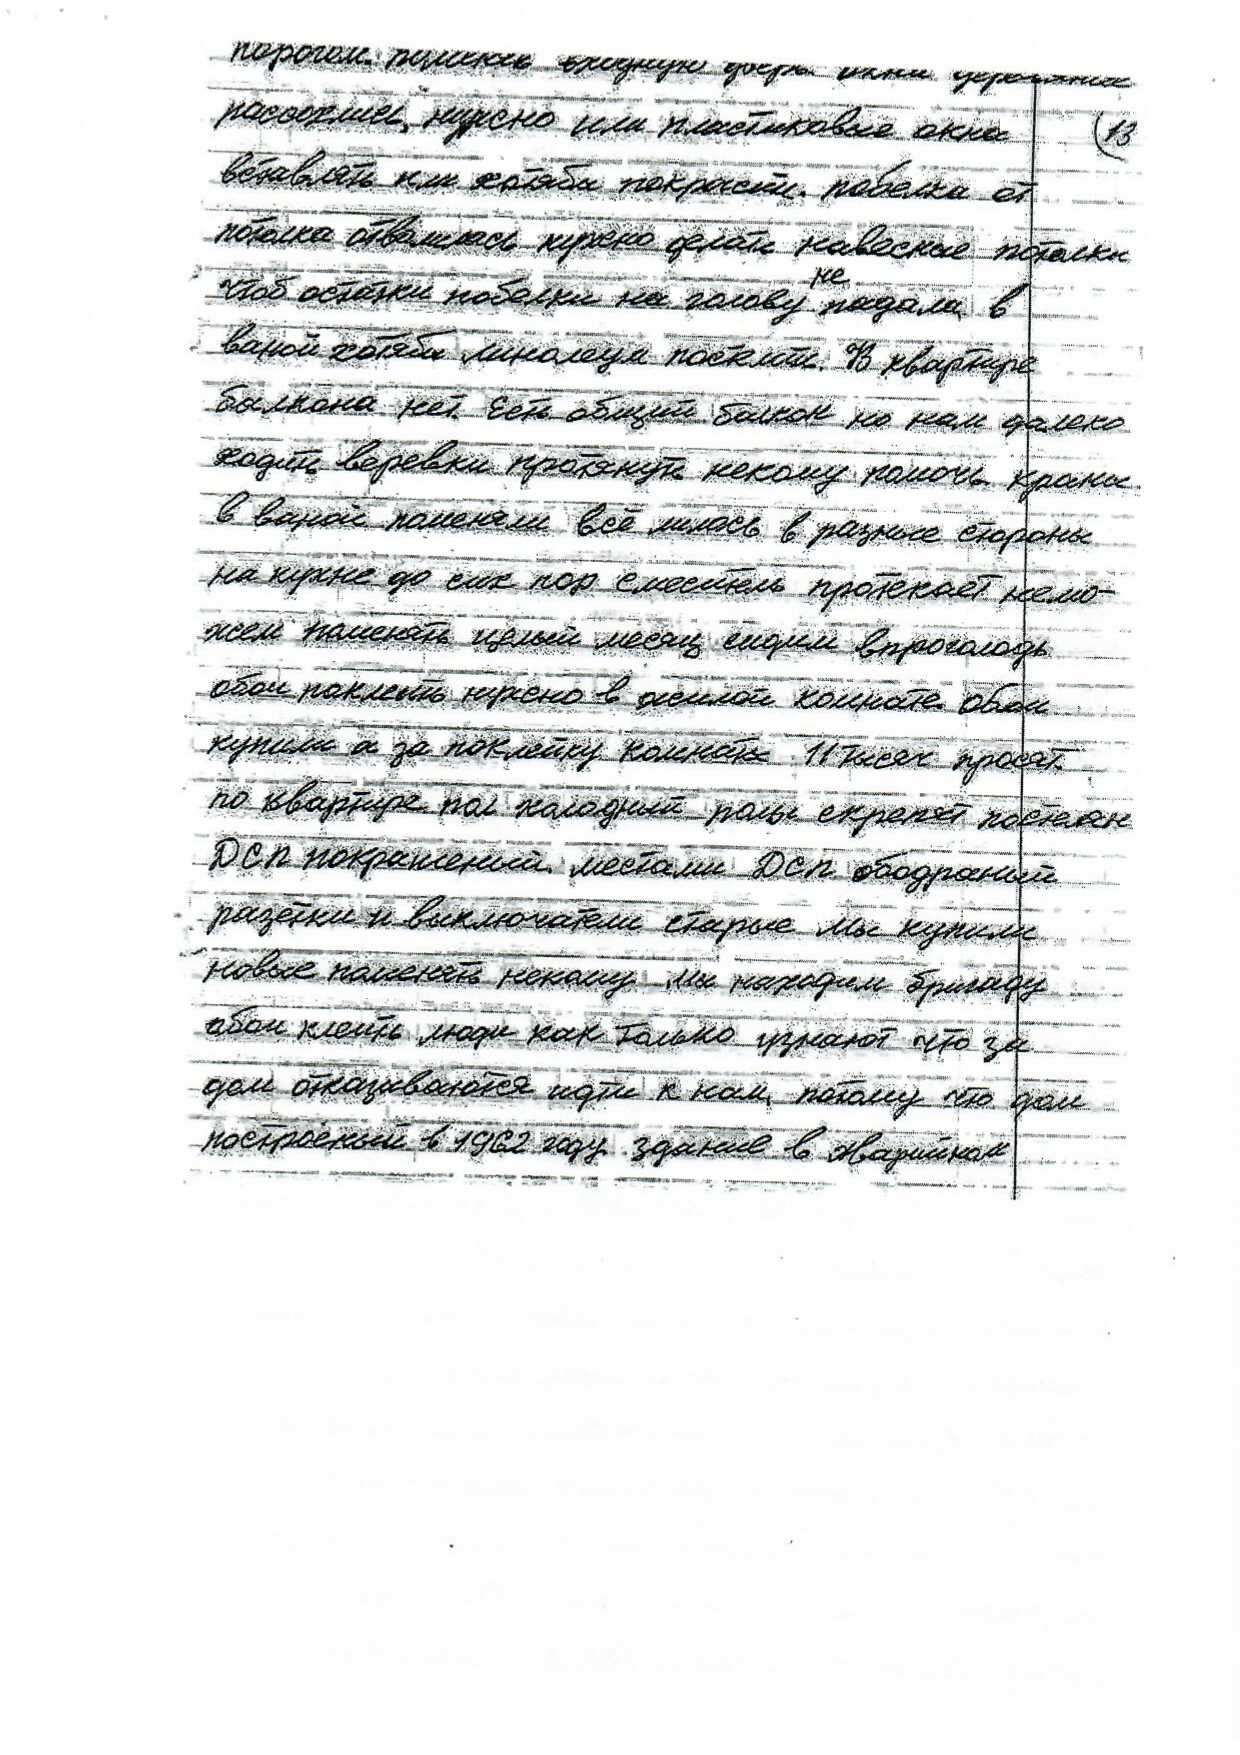 порогам. поменять входную дверь. окна деревянные
рассохлись, нужно или пластиковые окна
13
вставлять или хотябы покрасить. побелка от
потолка отвалилась нужно делать навесные потолки
не
чтоб остатки побелки на голову падали, в
ваной хотябы линолеум постелить. В квартире
балкона нет. Есть общий балкон но нам далеко
ходить веревки протянуть некому помочь. краны
в ваной поменяли всё лилось в разные стороны
на кухне до сих пор смеситель протекает немо-
жем поменять целый месяц сидим впроголодь
обои поклеить нужно в жилой комнате обои
купили а за поклейку комнаты 11 тысяч просят.
по квартире пол холодный полы скрепят постелен
ДСП покрашенный. местами ДСП ободраный
разетки и выключатели старые мы купили
новые поменять некому. мы находим бригаду
обои клеить люди как только узнают что за
дом отказываются идти к нам, потому что дом
построеный в 1962 году. здание в аварийном